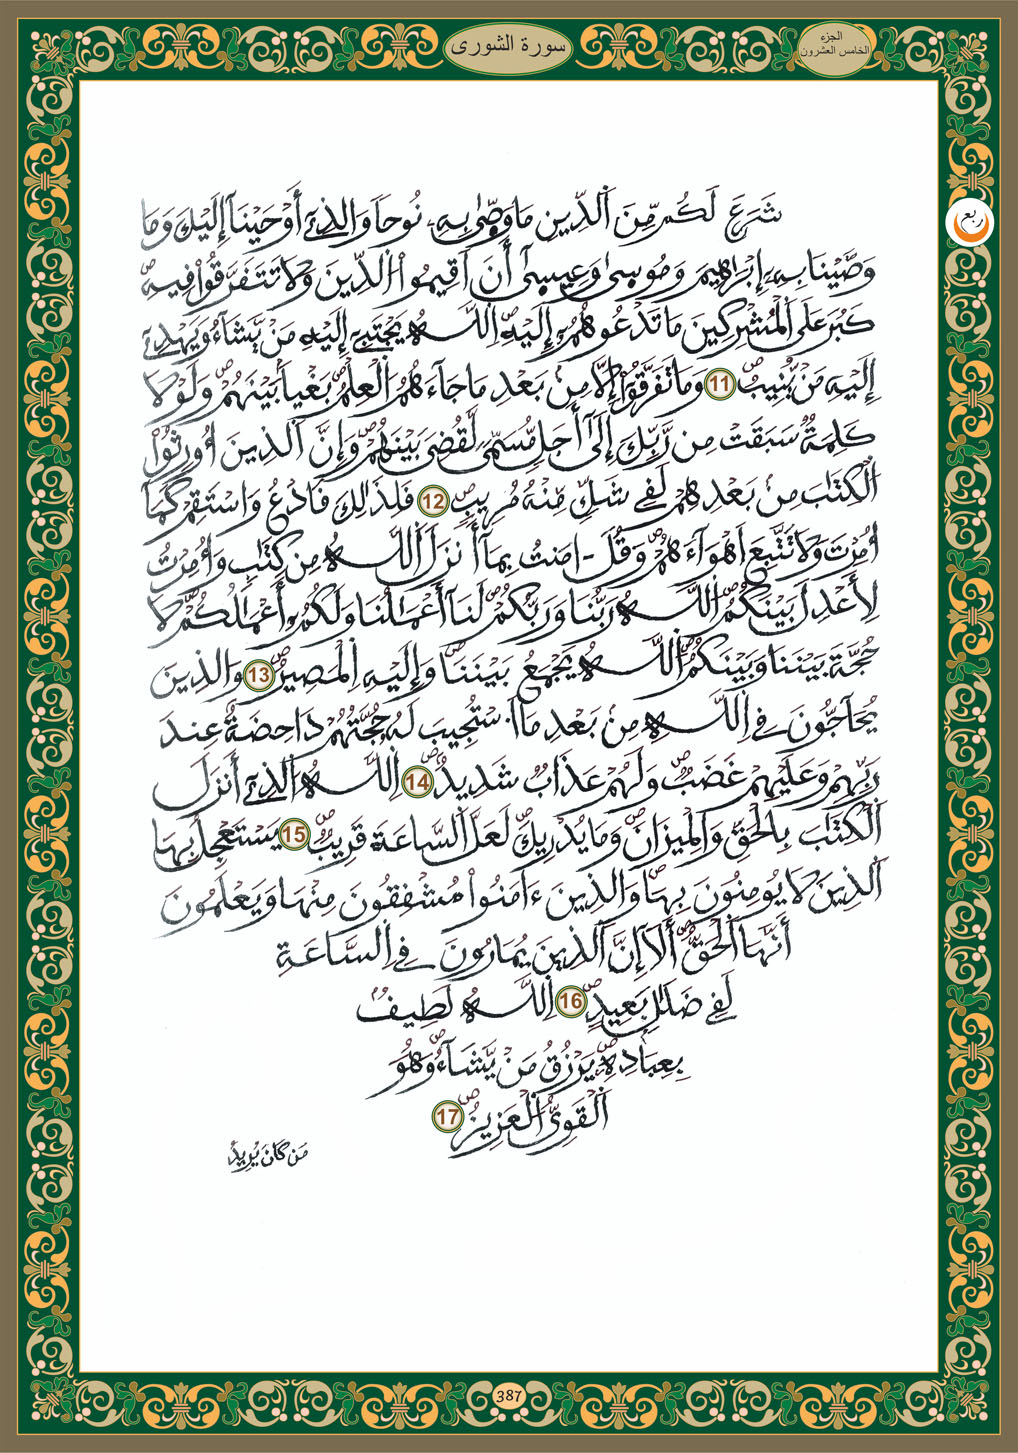 سورة الشورى
الجزء
الخامس العشرون
ربع
شَرَعَ لَكُم مِّنَ اَلدِّينِ مَا وَصّ۪ىٰ بِهِۦ نُوحاٗ وَالذِےٓ أَوْحَيْنَآ إِلَيْكَ وَمَا
وَصَّيْنَا بِهِۦٓ إِبْرَٰهِيمَ وَمُوس۪ىٰ وَعِيس۪ىٰٓ أَنَ اَقِيمُواْ اُلدِّينَ وَلَا تَتَفَرَّقُواْ فِيهِۖ
كَبُرَ عَلَى اَلْمُشْرِكِينَ مَا تَدْعُوهُمُۥٓ إِلَيْهِۖ اِ۬للَّهُ يَجْتَبِےٓ إِلَيْهِ مَنْ يَّشَآءُ وَيَهْدِےٓ
إِلَيْهِ مَنْ يُّنِيبُۖ 11 وَمَا تَفَرَّقُوٓاْ إِلَّا مِنۢ بَعْدِ مَا جَآءَهُمُ اُلْعِلْمُ بَغْياَۢ بَيْنَهُمْۖ وَلَوْلَا
كَلِمَةٞ سَبَقَتْ مِن رَّبِّكَ إِلَىٰٓ أَجَلٖ مُّسَمّىٗ لَّقُضِيَ بَيْنَهُمْۖ وَإِنَّ اَلذِينَ أُورِثُواْ
اُلْكِتَٰبَ مِنۢ بَعْدِهِمْ لَفِے شَكّٖ مِّنْهُ مُرِيبٖۖ 12 فَلِذَٰلِكَ فَادْعُ وَاسْتَقِمْ كَمَآ
أُمِرْتَ وَلَا تَتَّبِعَ اَهْوَآءَهُمْۖ وَقُلَ اٰمَنتُ بِمَآ أَنزَلَ اَللَّهُ مِن كِتَٰبٖ وَأُمِرْتُ
لِأَعْدِلَ بَيْنَكُمُۖ اُ۬للَّهُ رَبُّنَا وَرَبُّكُمْۖ لَنَآ أَعْمَٰلُنَا وَلَكُمُۥٓ أَعْمَٰلُكُمْۖ لَا
حُجَّةَ بَيْنَنَا وَبَيْنَكُمُۖ اُ۬للَّهُ يَجْمَعُ بَيْنَنَاۖ وَإِلَيْهِ اِ۬لْمَصِيرُۖ 13 وَالذِينَ
يُحَآجُّونَ فِے اِ۬للَّهِ مِنۢ بَعْدِ مَا اَ۟سْتُجِيبَ لَهُۥ حُجَّتُهُمْ دَاحِضَةٌ عِندَ
رَبِّهِمْ وَعَلَيْهِمْ غَضَبٞۖ وَلَهُمْ عَذَابٞ شَدِيدٌۖ 14 اِ۬للَّهُ اُ۬لذِےٓ أَنزَلَ
اَلْكِتَٰبَ بِالْحَقِّ وَالْمِيزَانَۖ وَمَا يُدْرِيكَۖ لَعَلَّ اَلسَّاعَةَ قَرِيبٞۖ 15 يَسْتَعْجِلُ بِهَا
اَلذِينَ لَا يُومِنُونَ بِهَاۖ وَالذِينَ ءَامَنُواْ مُشْفِقُونَ مِنْهَا وَيَعْلَمُونَ
أَنَّهَا اَلْحَقُّۖ أَلَآ إِنَّ اَلذِينَ يُمَارُونَ فِے اِ۬لسَّاعَةِ
لَفِے ضَلَٰلِۢ بَعِيدٍۖ 16 اِ۬للَّهُ لَطِيفُۢ
بِعِبَادِهِۦۖ يَرْزُقُ مَنْ يَّشَآءُۖ وَهُوَ
اَلْقَوِيُّ اُلْعَزِيزُۖ 17
مَن كَانَ يُرِيدُ
387